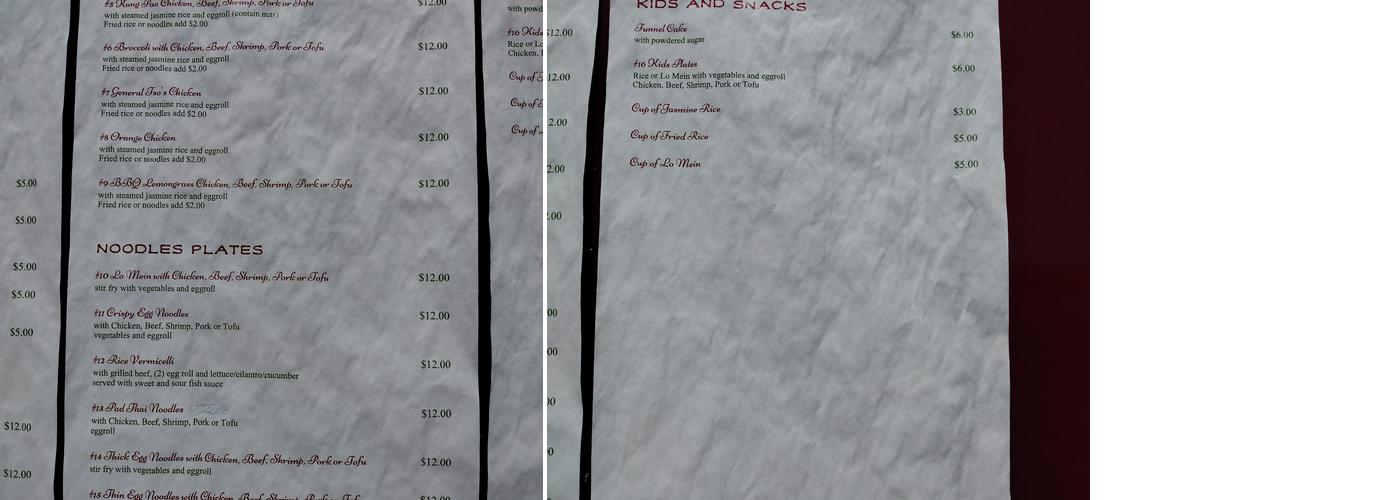 $5.00
$5.00
$5.00
$5.00
$5.00
$12.00
$12.00
#5 Kung Pao Chicken, Beef, Shrimp, Pork or Tofu $12.00
with steamed jasmine rice and eggroll (contain nuts)
Fried rice or noodles add $2.00
#6 Broccoli with Chicken, Beef, Shrimp, Pork or Tofu $12.00
with steamed jasmine rice and eggroll
Fried rice or noodles add $2.00
#7 General Tso's Chicken $12.00
with steamed jasmine rice and eggroll
Fried rice or noodles add $2.00
#8 Orange Chicken $12.00
with steamed jasmine rice and eggroll
Fried rice or noodles add $2.00
#9 BBQ Lemongrass Chicken, Beef, Shrimp, Pork or Tofu $12.00
with steamed jasmine rice and eggroll
Fried rice or noodles add $2.00
NOODLES PLATES
#10 Lo Mein with Chicken, Beef, Shrimp, Pork or Tofu $12.00
stir fry with vegetables and eggroll
#11 Crispy Egg Noodles $12.00
with Chicken, Beef, Shrimp, Pork or Tofu
vegetables and eggroll
#12 Rice Vermicelli $12.00
with grilled beef, (2) egg roll and lettuce/cilantro/cucumber
served with sweet and sour fish sauce
#13 Pad Thai Noodles $12.00
with Chicken, Beef, Shrimp, Pork or Tofu
eggroll
#14 Thick Egg Noodles with Chicken, Beef, Shrimp, Pork or Tofu $12.00
stir fry with vegetables and eggroll
#15 Thin Egg Noodles with Chicken, Beef, Shrimp, Pork or Tofu $12.00
with powd
#16 Kids
Rice or Lo
Chicken,
Cup of
Cup of
Cup of
$12.00
12.00
2.00
2.00
2.00
00
00
00
0
KIDS AND SNACKS
Funnel Cake $6.00
with powdered sugar
#16 Kids Plates $6.00
Rice or Lo Mein with vegetables and eggroll
Chicken, Beef, Shrimp, Pork or Tofu
Cup of Jasmine Rice $3.00
Cup of Fried Rice $5.00
Cup of Lo Mein $5.00